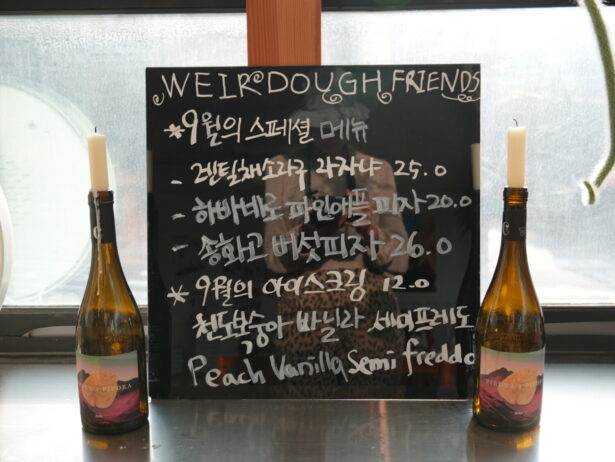 WEIRDOUGH FRIENDS
*9월의 스페셜 메뉴
- 렌틸채소라구 라자냐 25.0
- 하바네로 파인애플 피자 20.0
- 송화고 버섯피자 26.0
* 9월의 아이스크림 12.0
천도복숭아 바닐라 세미프레도
Peach Vanilla Semi freddo
PIEDRA